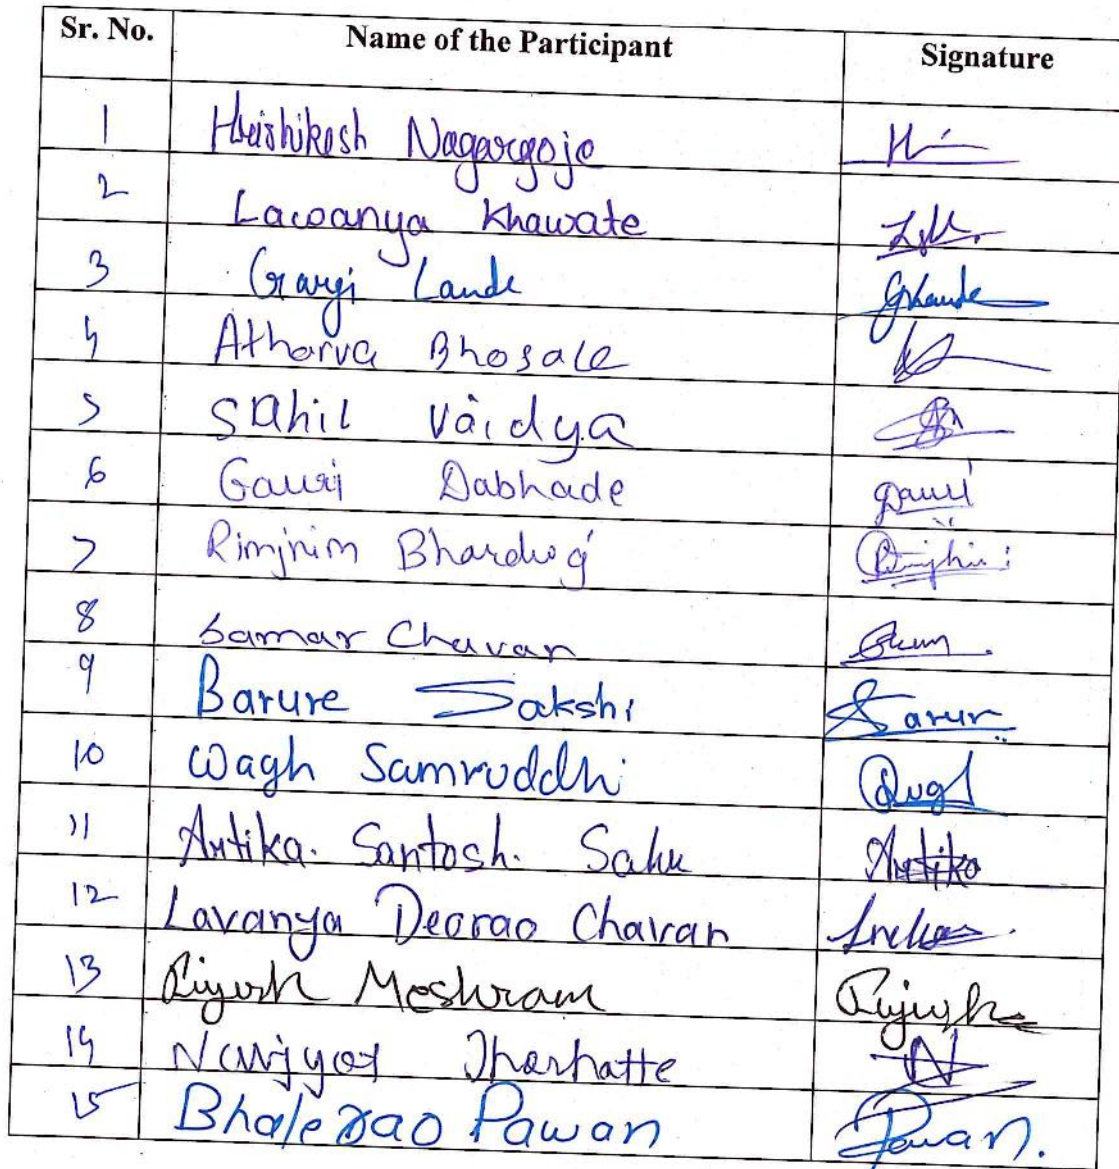 Sr. No. Name of the Participant Signature
1 Hrishikesh Nagargoje
2 Lawanya Khawate
3 Gargi Lande GRLande
4 Atharva Bhosale
5 Sahil Vaidya
6 Gauri Dabhade Gauri
7 Rimjhim Bhardwaj Rimjhim
8 Samar Chavan
9 Barure Sakshi Sarur
10 Wagh Samruddhi
11 Artika. Santosh. Sahu Artika
12 Lavanya Deorao Chavan
13 Piyush Meshram Piyush
14 Navjyot N
15 Bhalerao Pawan Pawan.